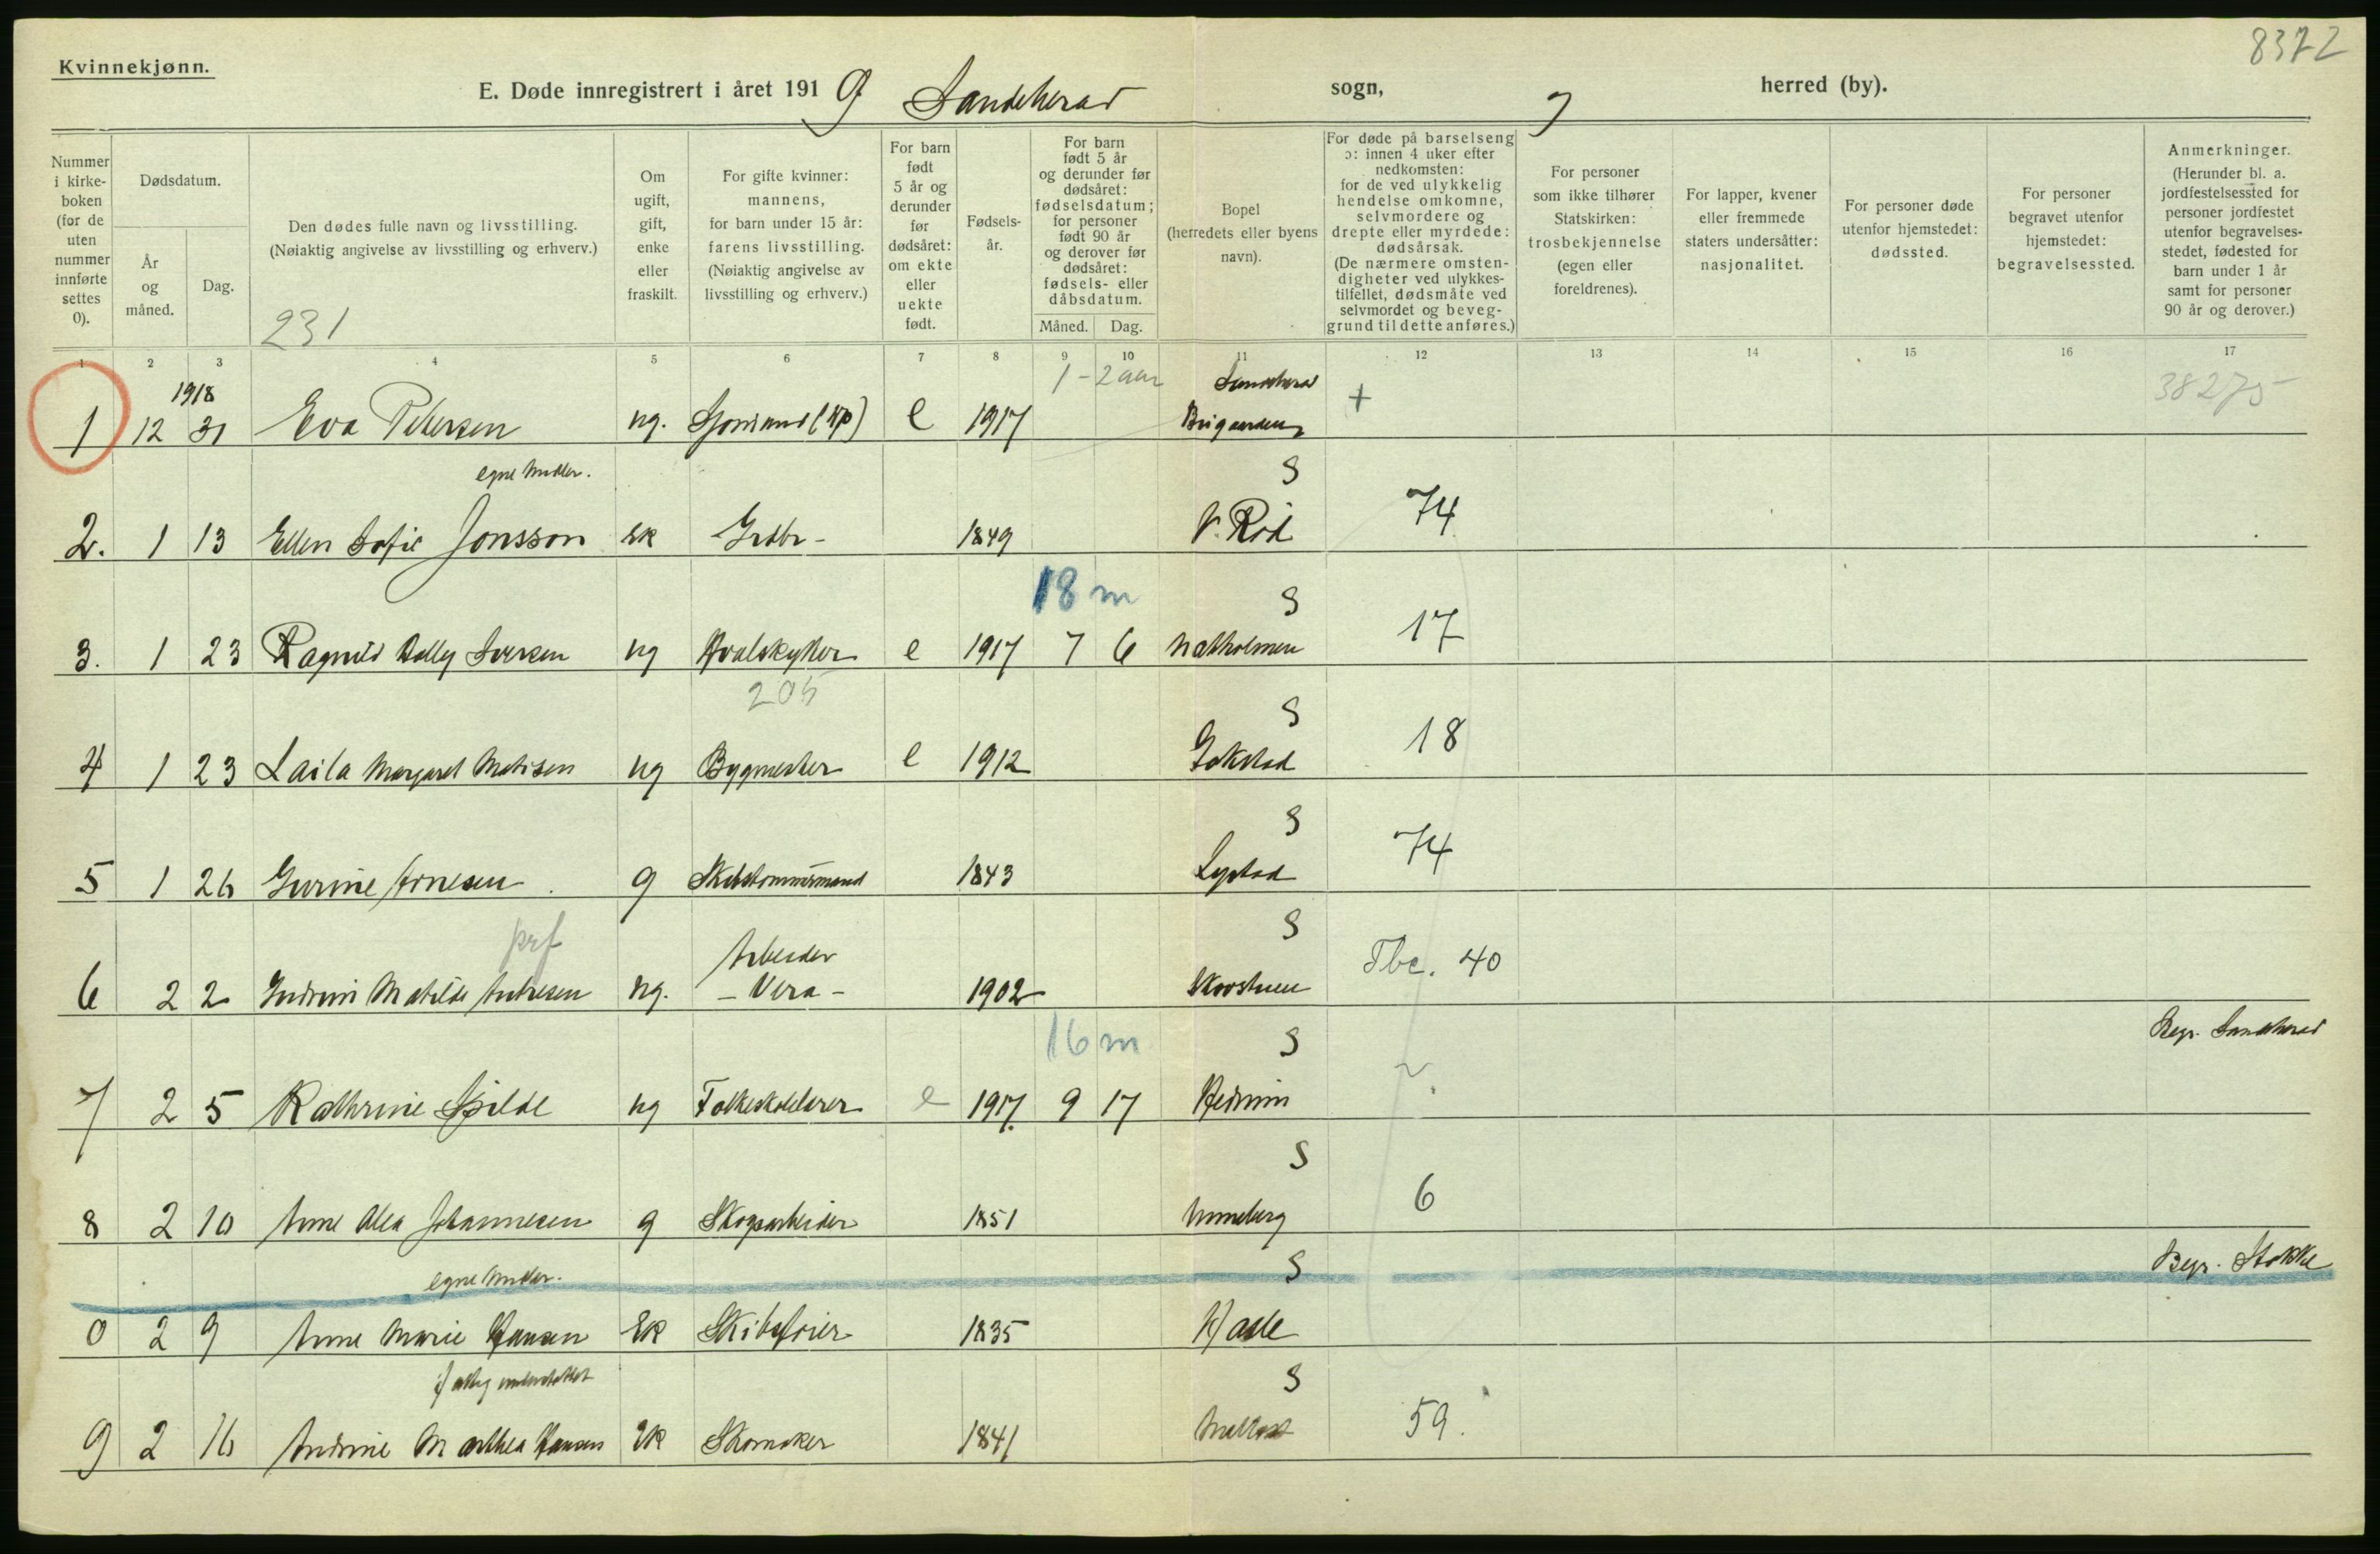 8372
Kvinnekjønn.
E. Døde innregistrert i året 1919 Sandeherad sogn, herred (by).
Nummer i kirke- boken (for de uten nummer innførte settes 0).
Dødsdatum.
År og måned.
Dag.
Den dødes fulle navn og livsstilling.
(Nøiaktig angivelse av livsstilling og erhverv.)
231
Om ugift, gift, enke eller fraskilt.
For gifte kvinner: mannens, for barn under 15 år: farens livsstilling. (Nøiaktig angivelse av livsstilling og erhverv.)
For barn født 5 år og derunder før dødsåret: om ekte eller uekte født.
Fødsels- år.
For barn født 5 år og derunder før dødsåret: fødselsdatum; for personer født 90 år og derover før dødsåret: fødsels- eller dåbsdatum.
Måned. Dag.
Bopel (herredets eller byens navn).
For døde på barselseng ɔ: innen 4 uker efter nedkomsten: for de ved ulykkelig hendelse omkomne, selvmordere og drepte eller myrdede: dødsårsak. (De nærmere omsten- digheter ved ulykkes- tilfellet, dødsmåte ved selvmordet og beveg- grund til dette anføres.)
For personer som ikke tilhører Statskirken: trosbekjennelse (egen eller foreldrenes).
For lapper, kvener eller fremmede staters undersåtter: nasjonalitet.
For personer døde utenfor hjemstedet: dødssted.
For personer begravet utenfor hjemstedet: begravelsessted.
Anmerkninger. (Herunder bl. a. jordfestelsessted for personer jordfestet utenfor begravelses- stedet, fødested for barn under 1 år samt for personer 90 år og derover.)
1 2 3 4 5 6 7 8 9 10 11 12 13 14 15 16 17
1918 1-2 aar Sandeherad 38275
1 12 31 Eva Petersen ug. e 1917 +
egne midler. S
2. 1 13 Ellen Sofie Jonsson Ek Grdbr- 1849 V. Röd 74
18 m S
3. 1 23 Ragnild Dolly Iversen ug Hvalskytter e 1917 7 6 Natholmen 17
205 S
4 1 23 Laila Margaret Matisen ug Bygmester e 1912 Gokstad 18
S
5 1 26 Gurine g Skibstømmermand 1843 Lystad 74
prf Arbeider S
6 2 2 Matilde ug. -Vera- 1902 Tbc. 40
16 m S Begr. Sandeherad
7 2 5 Kathrine ug Folkeskolelærer e 1917. 9 17
S
8 2 10 Anne Alea Johannesen g Skogsarbeider 1851 Unneberg 6
egne midler. S Begr. Stokke
0 2 9 Anne Marie Hansen Ek Skibsfører 1835 Hasle
fattig understøttet S
9 2 16 Andrine Marthea Hansen Ek Skomaker 1841 59.